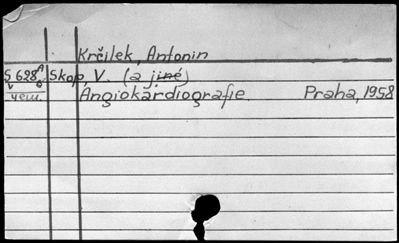 Krčilek, Antonin
S 628 Skop, V. (a jiné)
Angiokardiografie. Praha, 1958